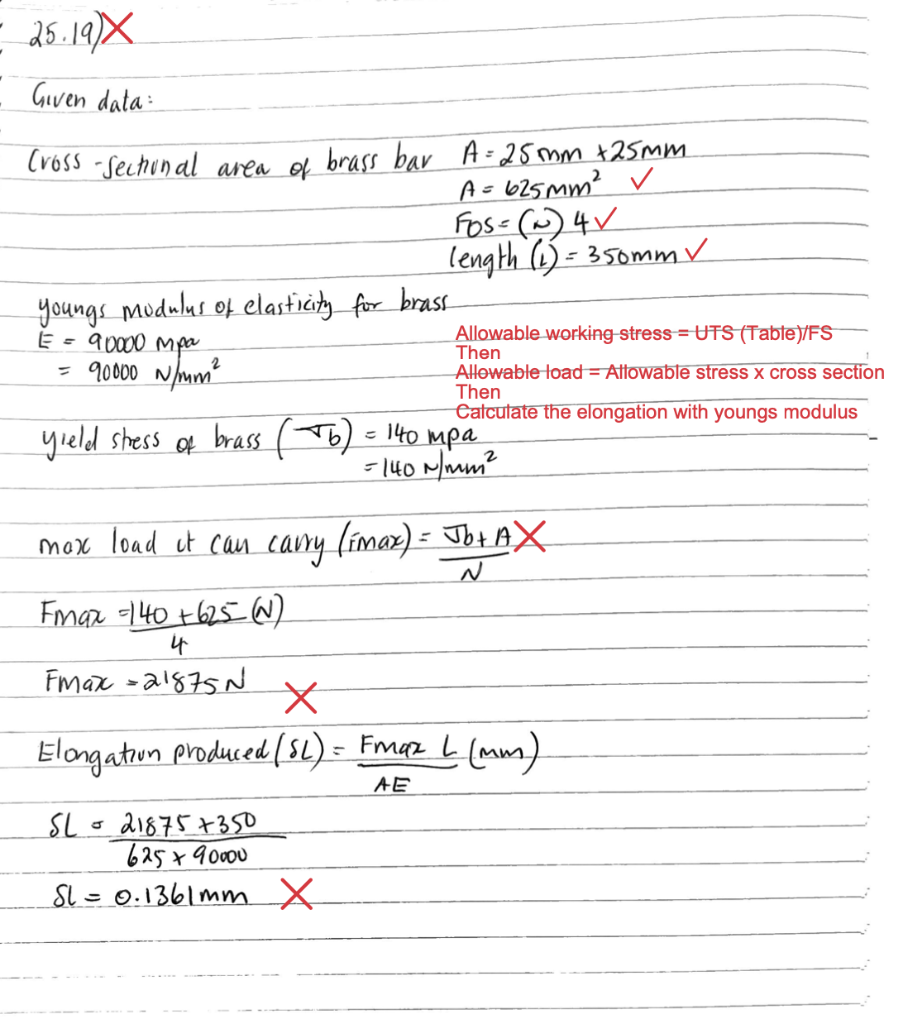 25.19)
Given data:
Cross-sectional area of brass bar A = 25mm × 25mm
A = 625mm²
FOS = (N) 4
length (L) = 350mm
youngs modulus of elasticity for brass
E = 90000 mpa
= 90000 N/mm²
Allowable working stress = UTS (Table)/FS
Then
Allowable load = Allowable stress x cross section
Then
Calculate the elongation with youngs modulus
yield stress of brass (σb) = 140 mpa
= 140 N/mm²
max load it can carry (Fmax) = σb × A / N
Fmax = 140 × 625 / 4 (N)
Fmax = 21875 N
Elongation produced (δL) = Fmax L / AE (mm)
δL = 21875 × 350 / 625 × 90000
δL = 0.1361mm